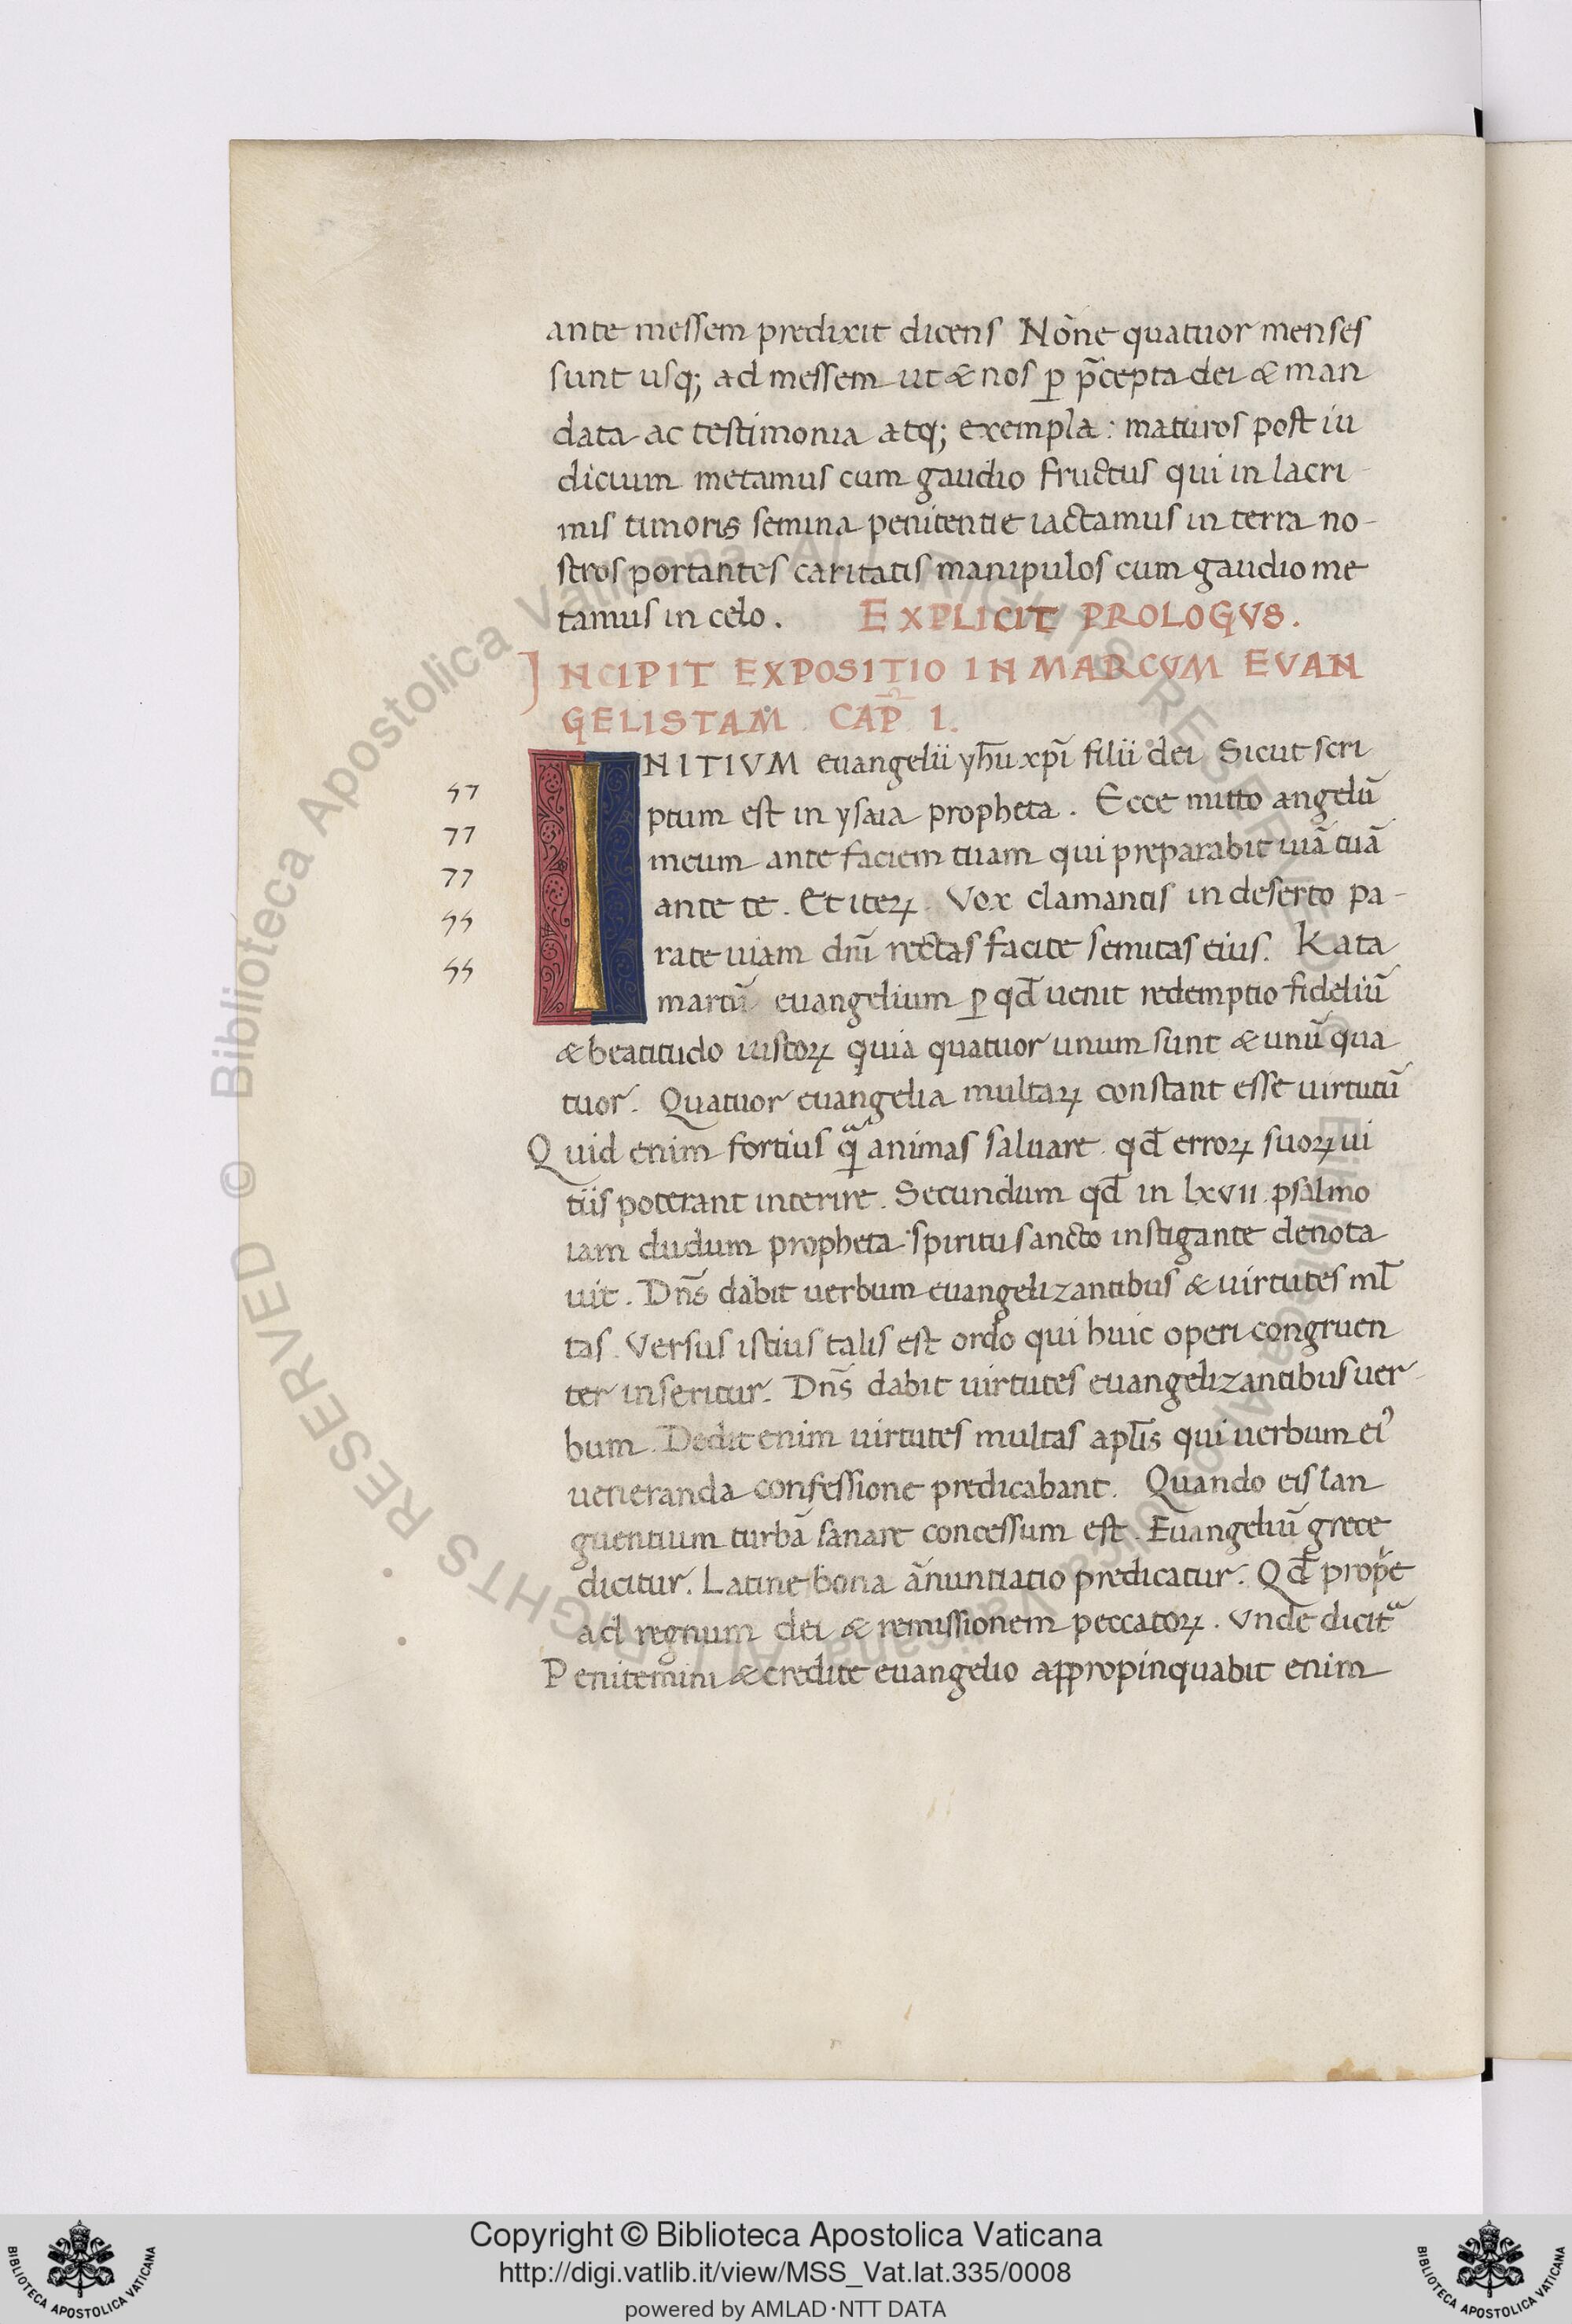 ante messem predixit dicens Nōne quatuor menses
sunt usq; ad messem ut & nos ꝑ p̄cepta dei & man
data ac testimonia atq; exempla: maturos post iu
dicium metamus cum gaudio fructus qui in lacri
mis timoris semina penitentie iactamus in terra no-
stros portantes caritatis manipulos cum gaudio me
tamus in celo. EXPLICIT PROLOGVS.
INCIPIT EXPOSITIO IN MARCVM EVAN
GELISTAM. CAP̄ I.
INITIVM euangelii yh̄u xp̄i filii dei Sicut scri
ptum est in ysaia propheta. Ecce mitto angelū
meum ante faciem tuam qui preparabit uiā tuā
ante te. Et iteꝝ. Vox clamantis in deserto pa-
rate uiam dn̄i rectas facite semitas eius. Kata
marcū euangelium ꝑ qd̄ uenit redemptio fideliū
& beatitudo iustoꝝ quia quatuor unum sunt & unū qua
tuor. Quatuor euangelia multaꝝ constant esse uirtutū
Quid enim fortius qͣ̄ animas saluare qd̄ erroꝝ suoꝝ ui
tiis poterant interire. Secundum qd̄ in lxvii. psalmo
iam dudum propheta spiritu sancto instigante denota
uit. Dn̄s dabit uerbum euangelizantibus & uirtutes ml̄
tas. Versus istius talis est ordo qui huic operi congruen
ter inseritur. Dn̄s dabit uirtutes euangelizantibus uer-
bum. Dedit enim uirtutes multas apl̄is qui uerbum ei᾽
ueneranda confessione predicabant. Quando eis lan
guentium turbā sanare concessum est. Euangeliū grece
dicitur. Latine bona ānuntiatio predicatur. Qd̄ prop̄e
ad regnum dei & remissionem peccatoꝝ. Vnde dicitᷓ
Penitemini & credite euangelio appropinquabit enim
57
77
77
55
55
© Biblioteca Apostolica Vaticana ALL RIGHTS RESERVED
Copyright © Biblioteca Apostolica Vaticana
http://digi.vatlib.it/view/MSS_Vat.lat.335/0008
powered by AMLAD·NTT DATA
BIBLIOTECA APOSTOLICA VATICANA
BIBLIOTECA APOSTOLICA VATICANA